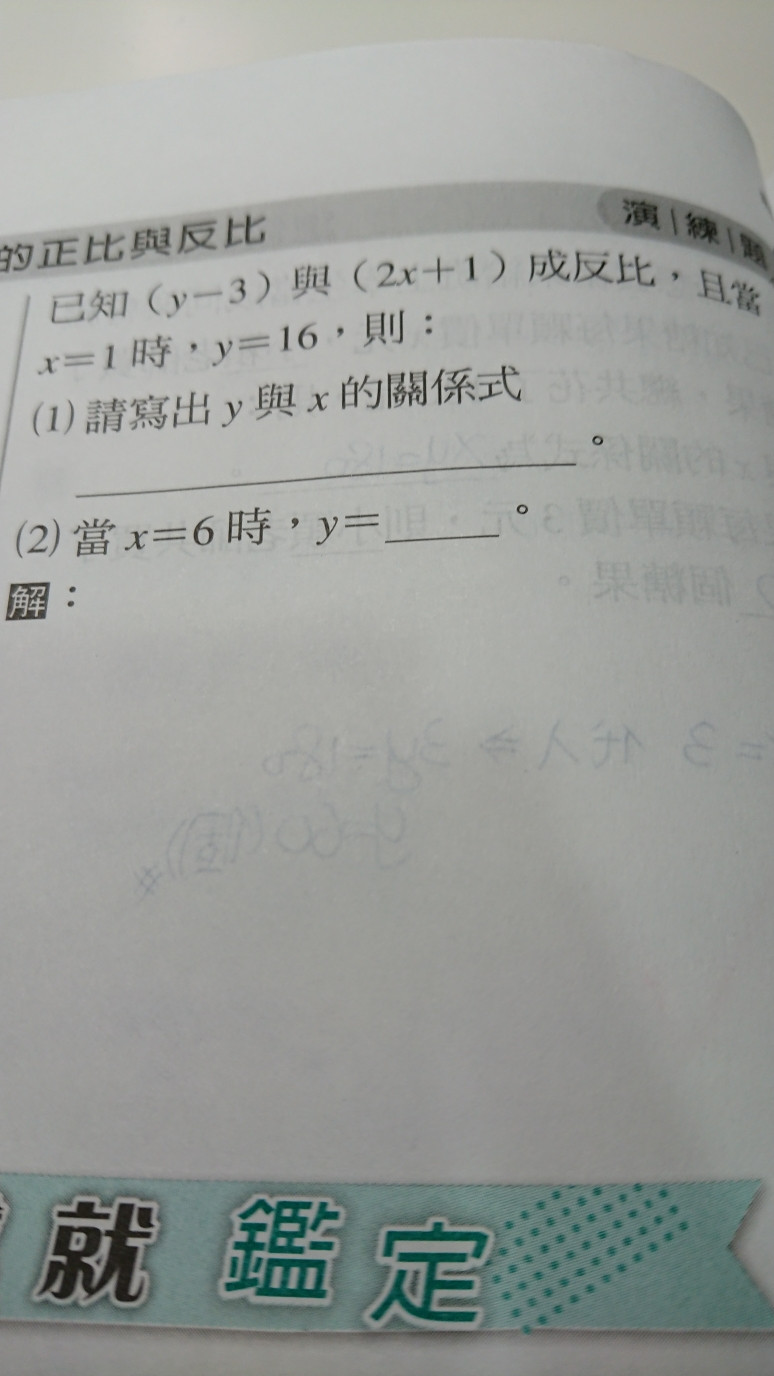 的正比與反比
演|練|題
已知（y－3）與（2x＋1）成反比，且當
x＝1 時，y＝16，則：
(1) 請寫出 y 與 x 的關係式
＿＿＿＿＿＿＿＿＿＿。
(2) 當 x＝6 時，y＝＿＿＿。
解：
就 鑑定